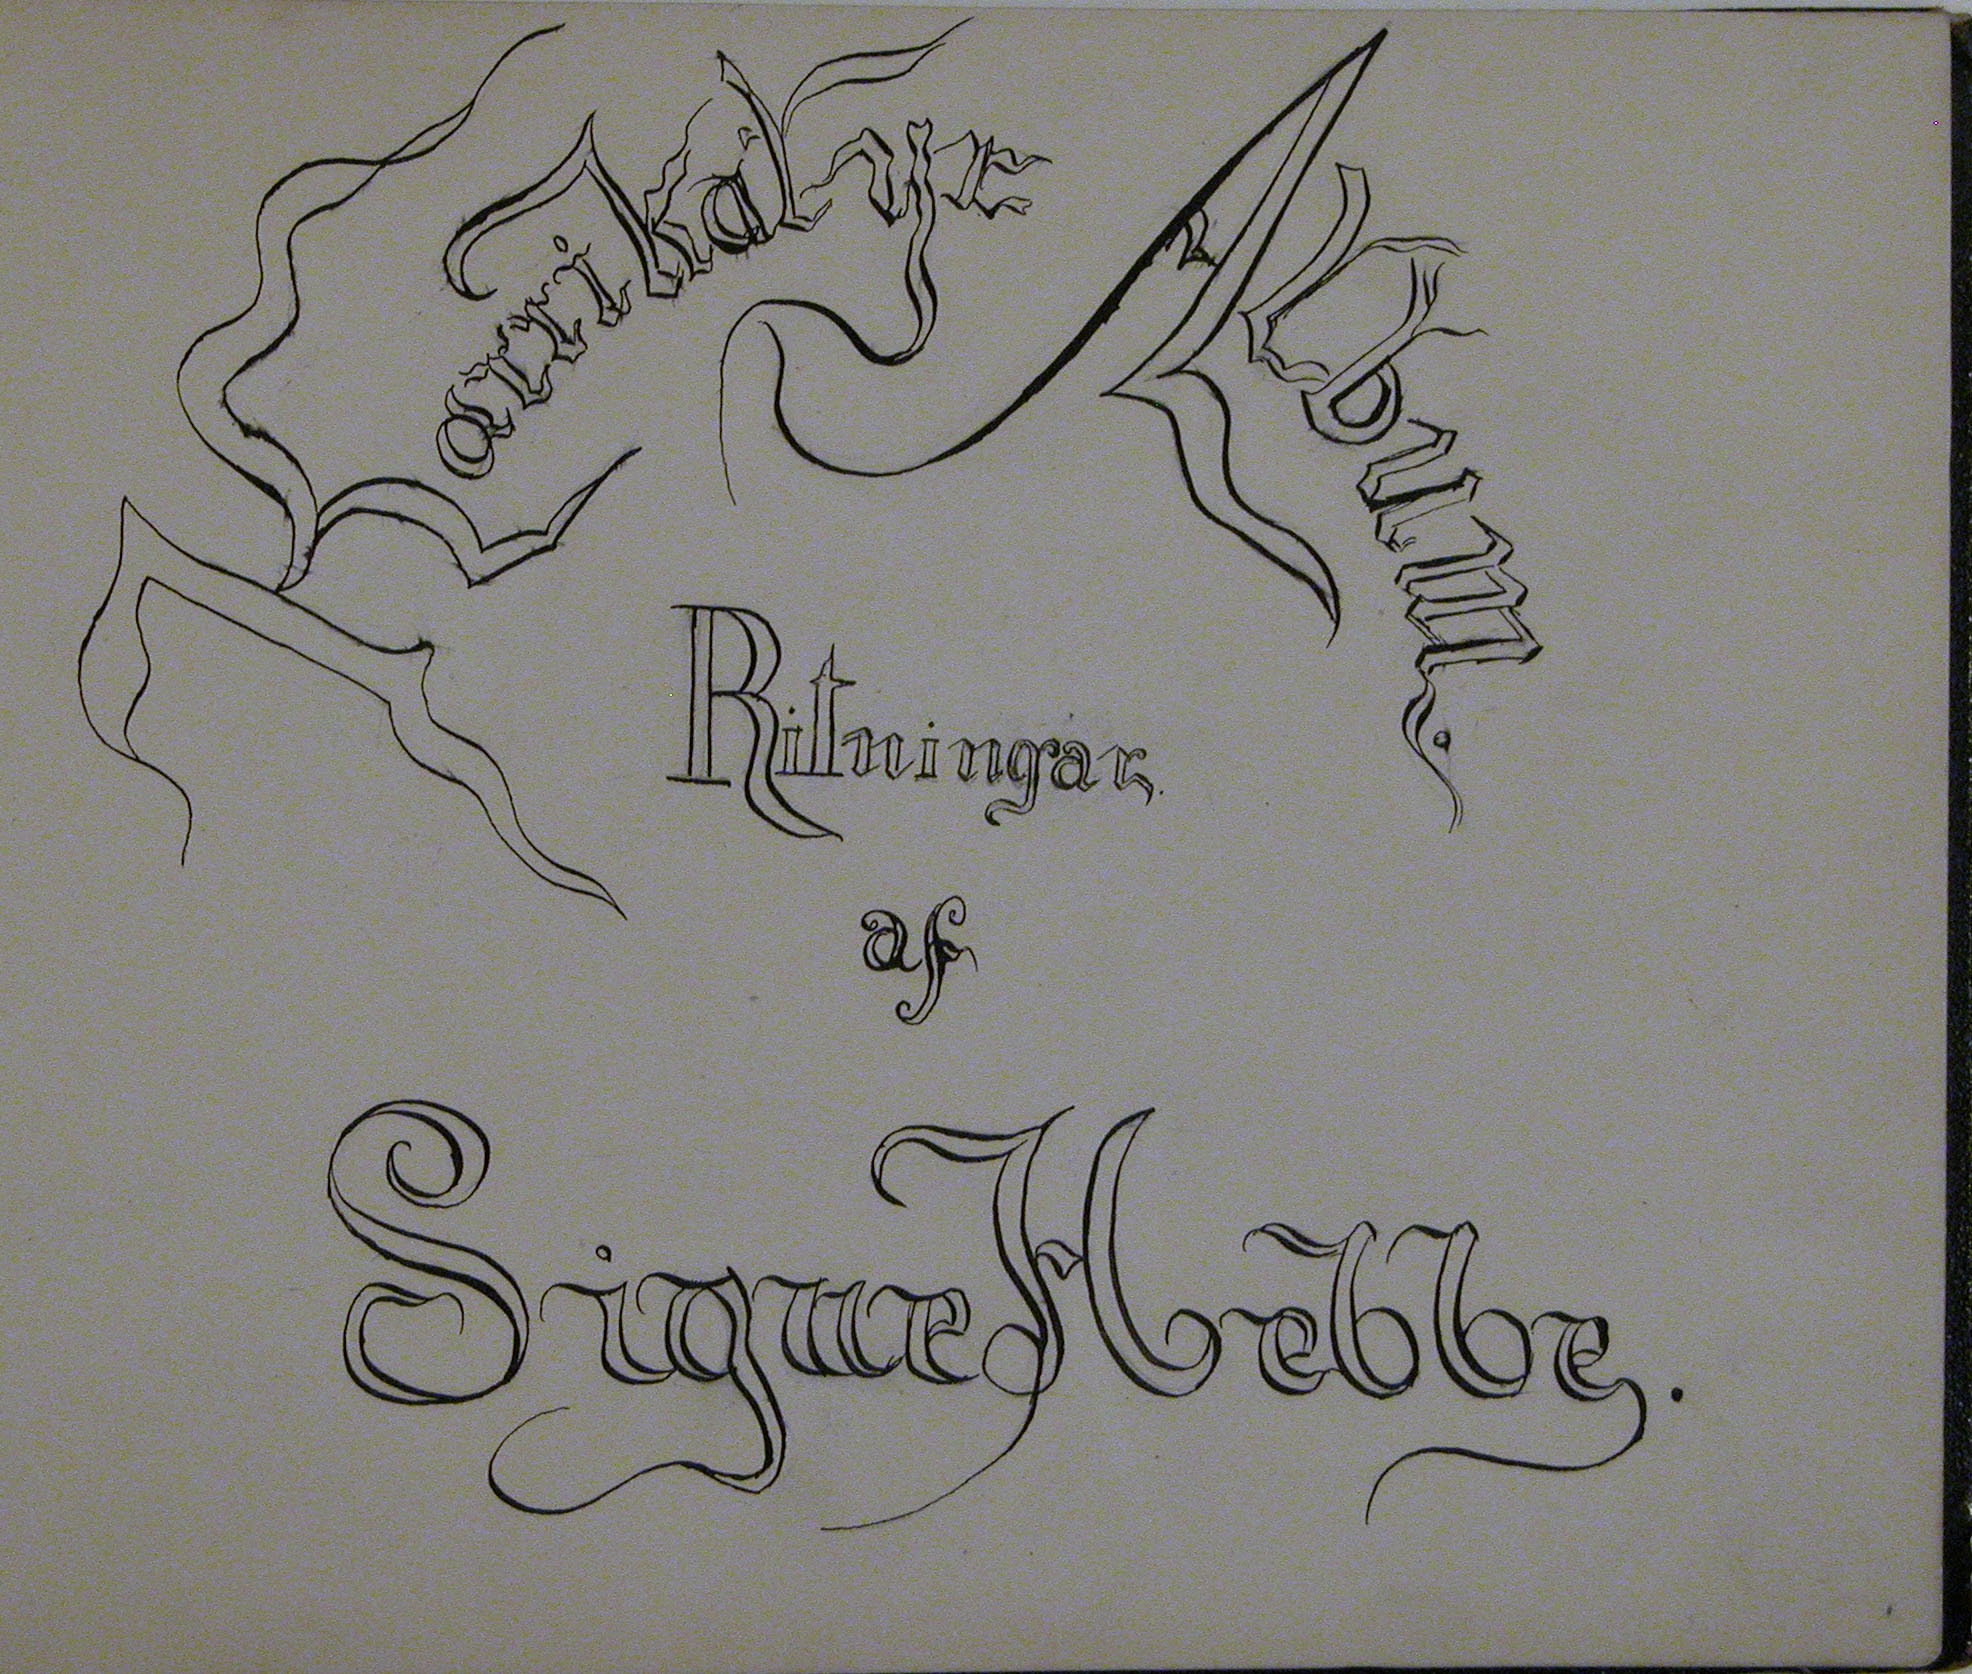 Karrikatyr Album.
Ritningar.
af
Signe Hebbe.